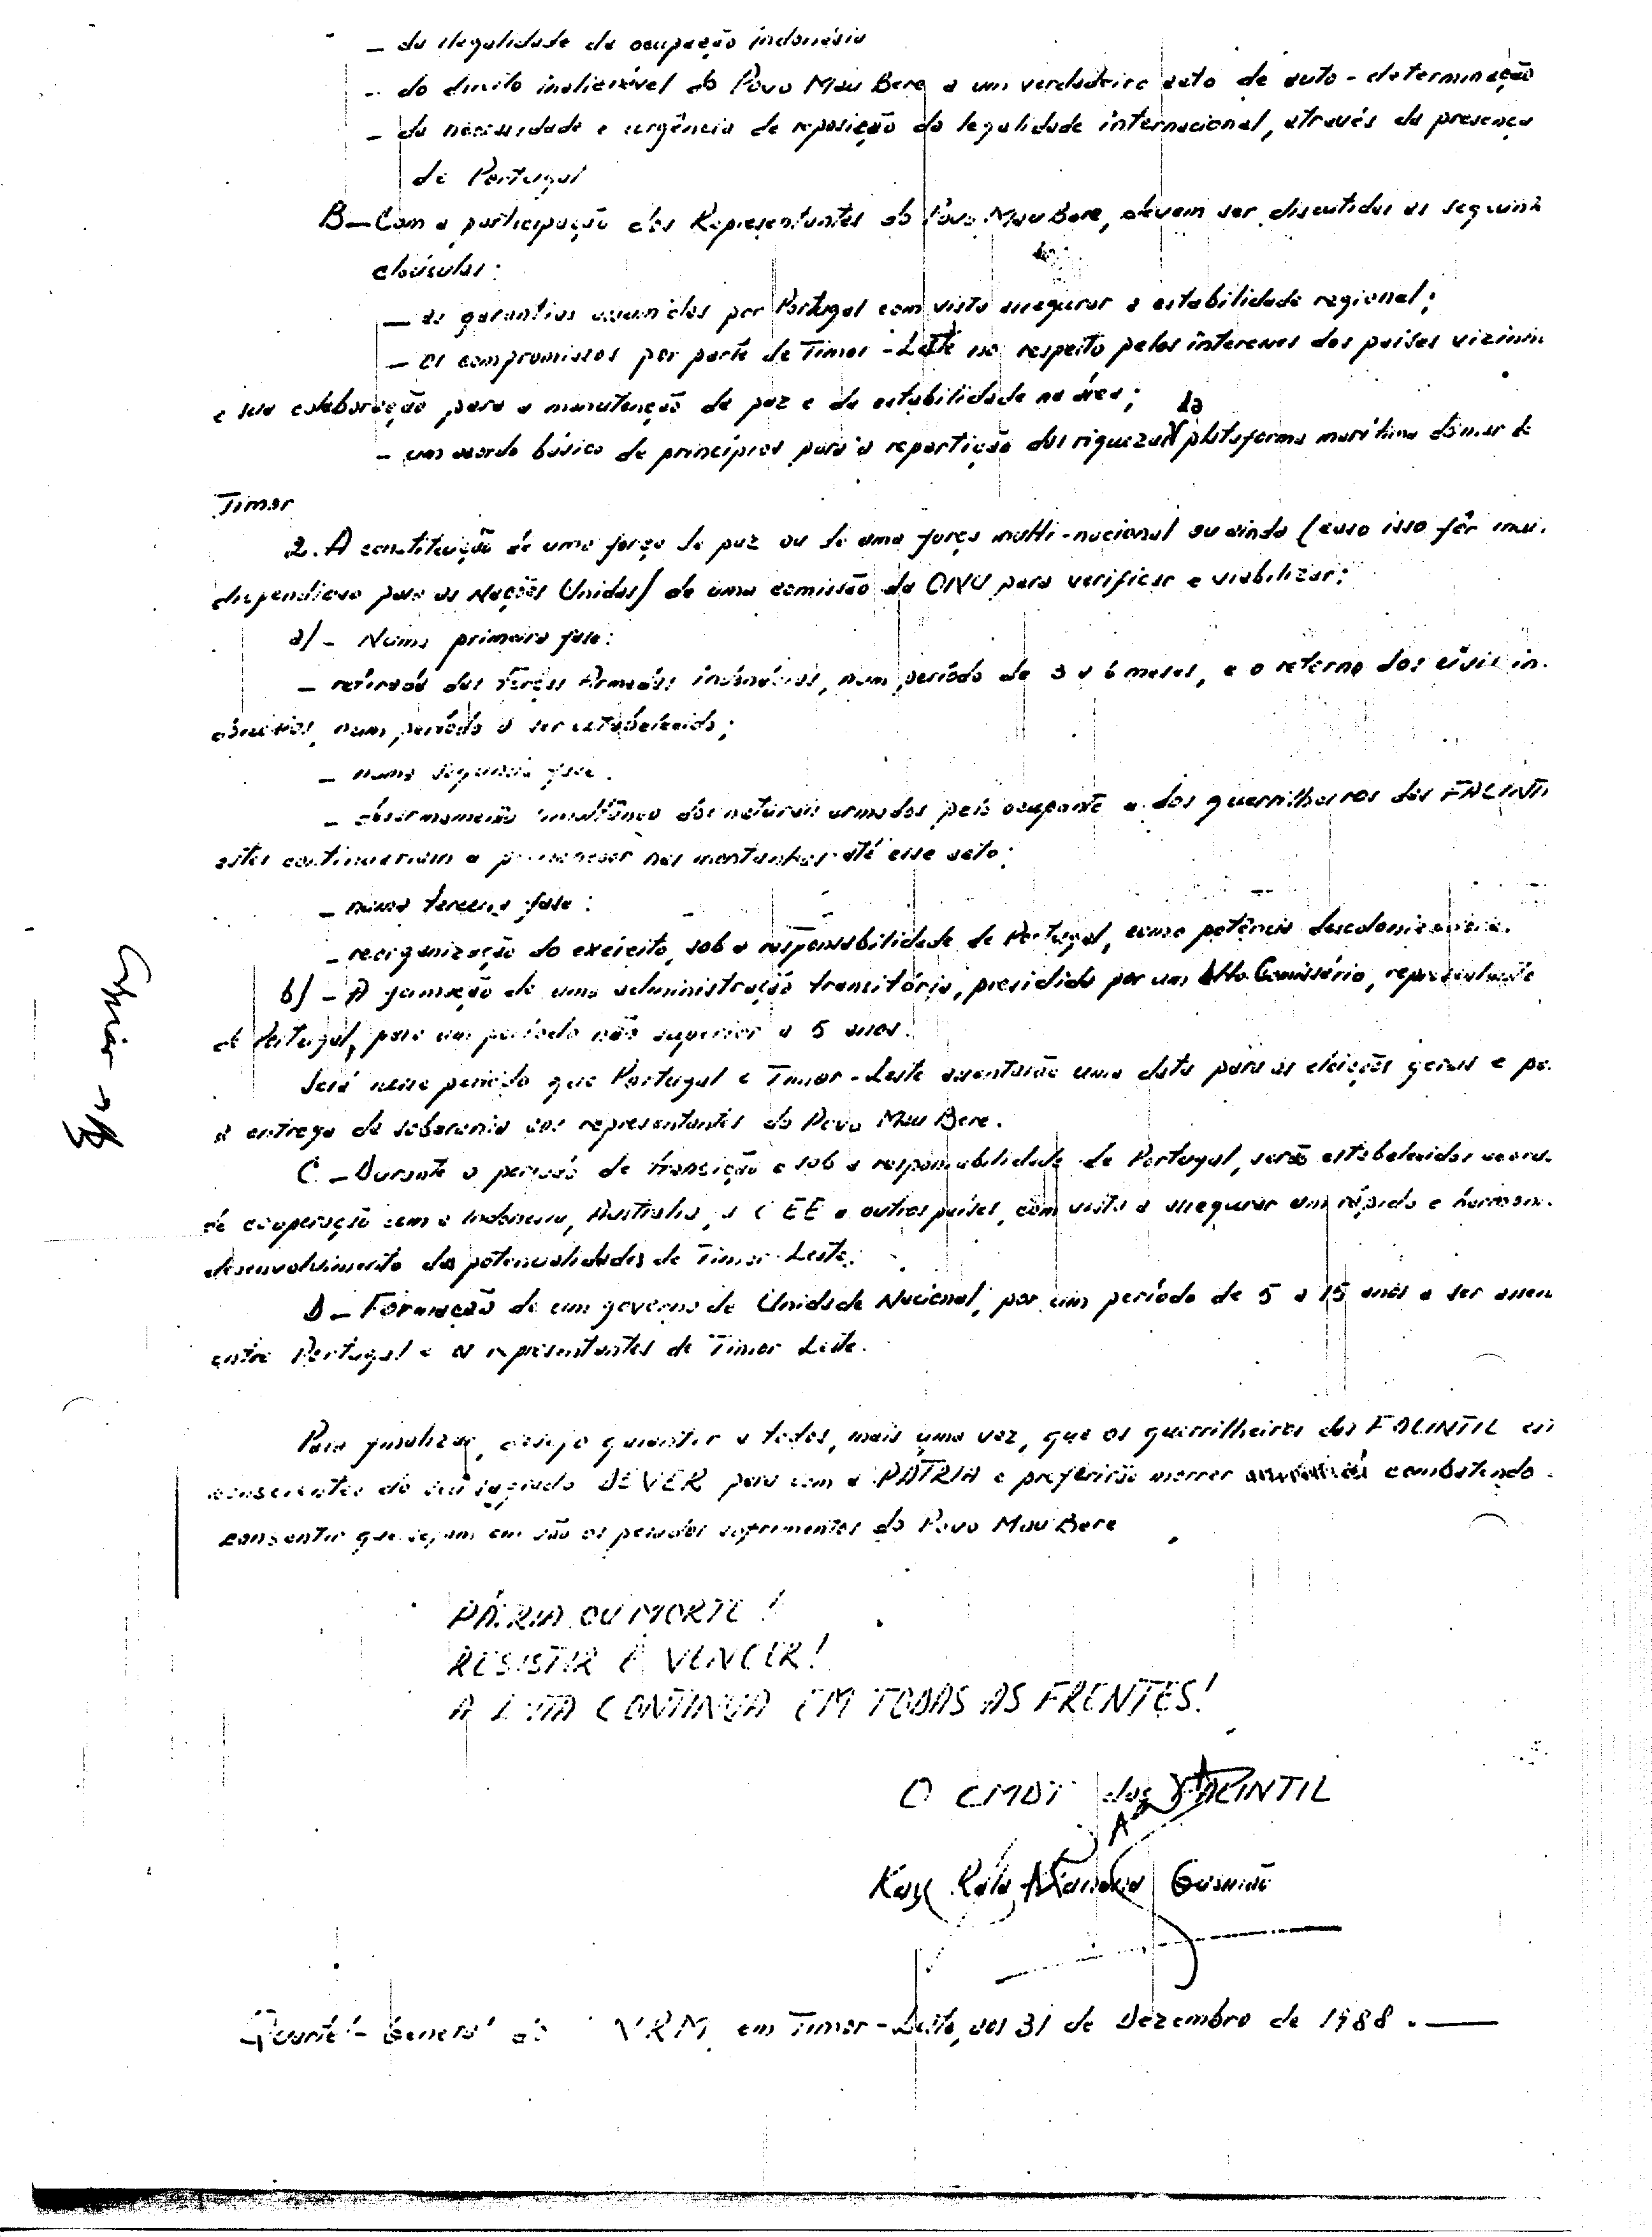 – da ilegalidade da ocupação indonésia
– do direito inalienável do Povo Mau Bere a um verdadeiro acto de auto-determinação
– da necessidade e urgência de reposição da legalidade internacional, através da presença
de Portugal
B – Com a participação dos Representantes do Povo Mau Bere, devem ser discutidas as
cláusulas:
– as garantias assumidas por Portugal com vista assegurar a estabilidade regional;
– os compromissos por parte de Timor-Leste no respeito pelos interesses dos países
e sua colaboração para a manutenção da paz e da estabilidade na área;
– um acordo básico de princípios para a repartição das riquezas da plataforma marítima do mar de
Timor
2. A constituição de uma força de paz ou de uma força multi-nacional ou ainda (caso isso fôr
dispendioso para as Nações Unidas) de uma comissão da ONU para verificar e viabilizar:
a) – Numa primeira fase:
– retirada das Forças Armadas indonésias, num período de 3 a 6 meses, e o retorno dos civis in-
donésios, num período a ser estabelecido;
– numa segunda fase:
– desarmamento simultâneo dos naturais armados pelo ocupante e dos guerrilheiros das FALINTI
estes continuariam a permanecer nas montanhas até esse acto;
– numa terceira fase:
– reorganização do exército, sob a responsabilidade de Portugal, como potência descolonizadora.
b) – A formação de uma administração transitória, presidida por um Alto Comissário, representante
de Portugal, para um período não superior a 5 anos.
Será nesse período que Portugal e Timor-Leste assentarão uma data para as eleições gerais e pa.
a entrega da soberania aos representantes do Povo Mau Bere.
C – Durante o período de transição e sob a responsabilidade de Portugal, serão estabelecidos
de cooperação com a Indonésia, Austrália, a CEE e outros países, com vista a assegurar um rápido e
desenvolvimento das potencialidades de Timor-Leste.
D – Formação de um governo de Unidade Nacional, por um período de 5 a 15 anos a ser
entre Portugal e os representantes de Timor Leste.
Para finalizar, desejo garantir a todos, mais uma vez, que os guerrilheiros das FALINTIL
conscientes do seu sagrado DEVER para com a PÁTRIA e preferirão morrer combatendo
consentir que sejam em vão os pesados sofrimentos do Povo Mau Bere
PÁTRIA OU MORTE!
RESISTIR É VENCER!
A LUTA CONTINUA EM TODAS AS FRENTES!
O CMDT das FALINTIL
Kay Rala Xanana Gusmão
Quartel-General do CNRM, em Timor-Leste, aos 31 de Dezembro de 1988.